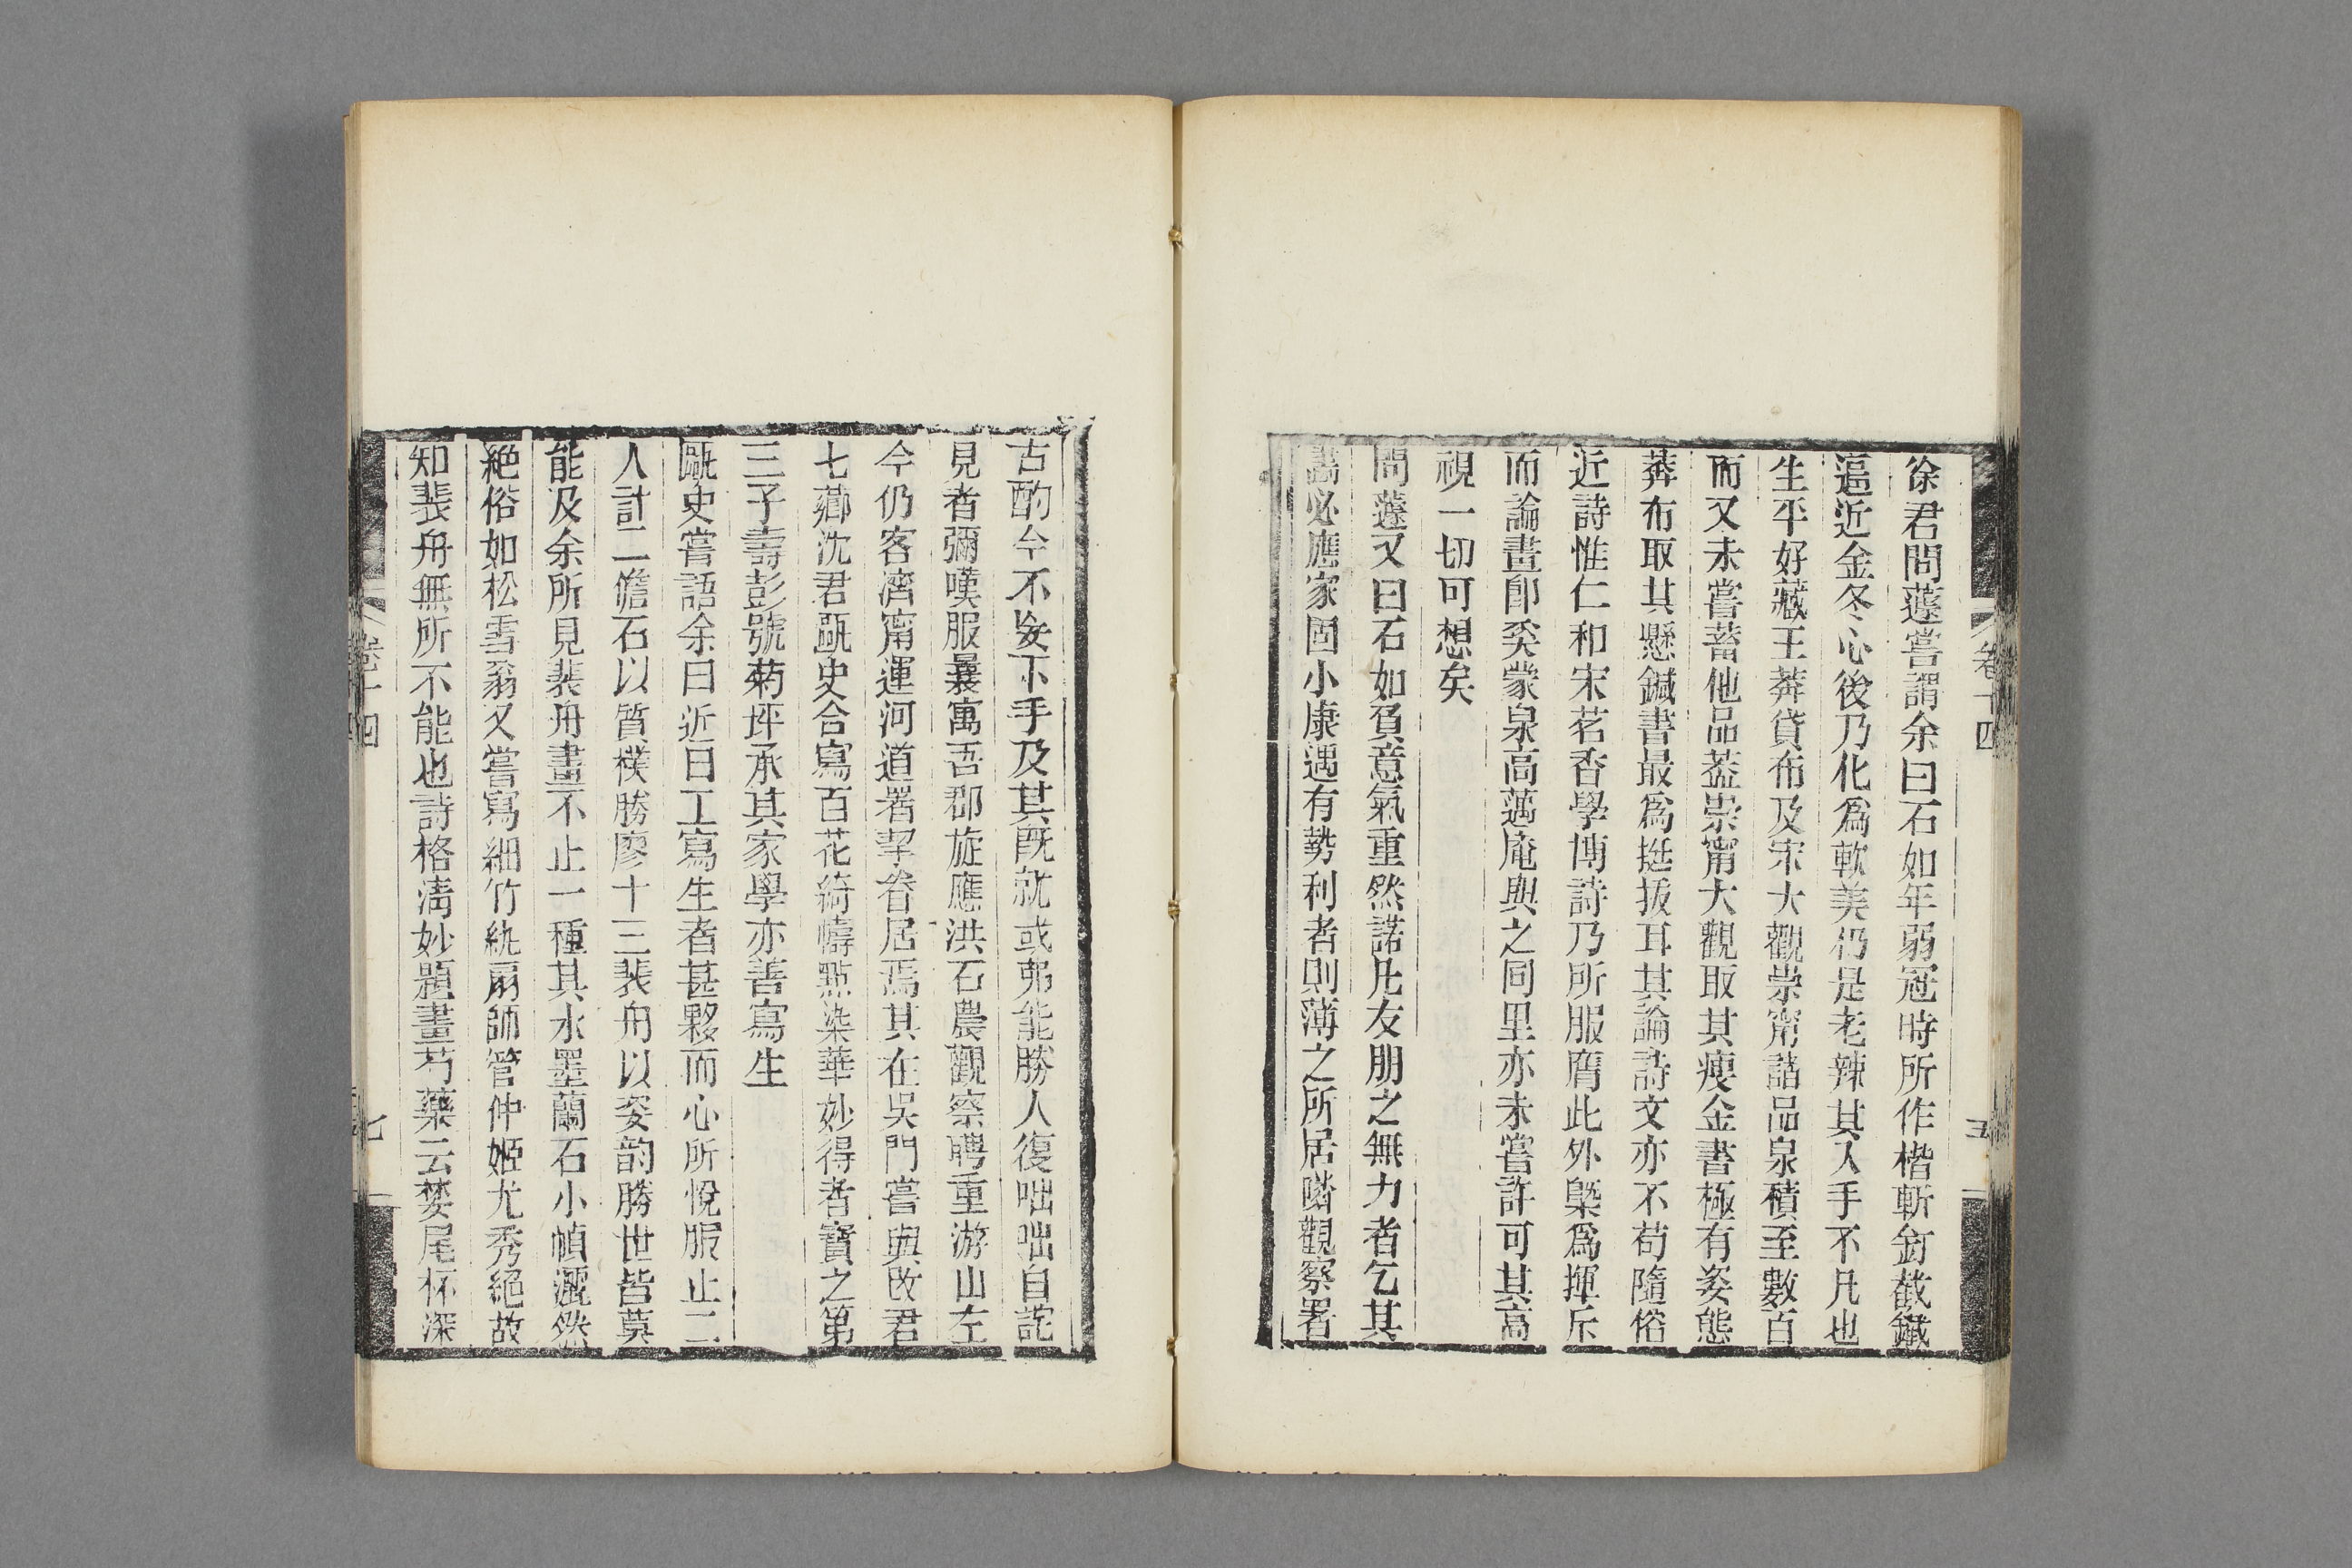 徐君問蘧嘗謂余曰石如年弱冠時所作楷斬釿截鐵
逼近金冬心後乃化爲軟美仍是老辣其入手不凡也
生平好藏王莽貨布及宋大觀崇甯諸品泉積至數百
而又未嘗蓄他品葢崇甯大觀取其瘦金書極有姿態
莽布取其懸鍼書最爲挺拔耳其論詩文亦不苟隨俗
近詩惟仁和宋茗香學博詩乃所服膺此外槩爲揮斥
而論畫卽奚蒙泉高邁庵與之同里亦未嘗許可其高
視一切可想矣
問蘧又曰石如負意氣重然諾凡友朋之無力者乞其
畵必應家固小康遇有勢利者則薄之所居隣觀察署
卷十四
五
古酌今不妄下手及其既就或弗能勝人復咄咄自詫
見者彌嘆服曩寓吾郡旋應洪石農觀察聘重游山左
今仍客濟甯運河道署挈眷居焉其在吳門嘗與改君
七薌沈君甌史合寫百花綺幬點染華妙得者寶之第
三子壽彭號菊坪承其家學亦善寫生
甌史嘗語余曰近日工寫生者甚夥而心所悅服止二
人計二儋石以質樸勝廖十三裴舟以姿韵勝世皆莫
能及余所見裴舟畫不止一種其水墨蘭石小幀灑然
絕俗如松雪翁又嘗寫細竹紈扇師管仲姬尤秀絕故
知裴舟無所不能也詩格淸妙題畫芍藥云婪尾杯深
卷十四
七